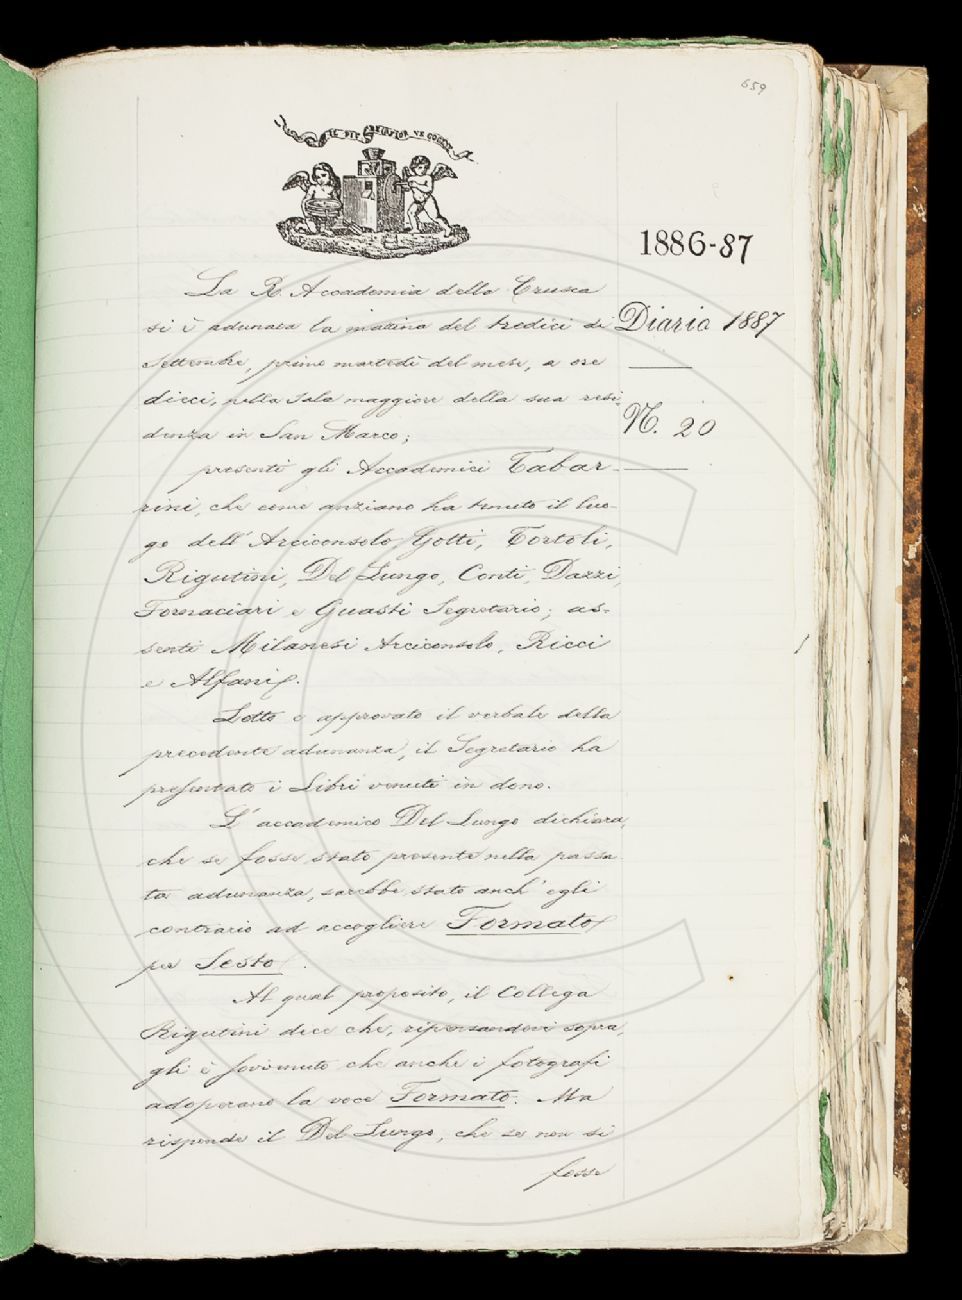 659
1886-87
La R. Accademia della Crusca
si è adunata la mattina del tredici di
Settembre, primo martedì del mese, a ore
dieci, nella Sala maggiore della sua resi
denza in San Marco;
presenti gli Accademici Tabar-
rini, che come anziano ha tenuto il luo-
go dell' Arciconsolo, Gotti, Tortoli,
Rigutini, Del Lungo, Conti, Dazzi,
Fornaciari e Guasti Segretario; as-
senti Milanesi Arciconsolo, Ricci
e Alfani.
Letto e approvato il verbale della
precedente adunanza, il Segretario ha
presentato i Libri venuti in dono.
L' accademico Del Lungo dichiara,
che se fosse stato presente nella passa
ta adunanza, sarebbe stato anch' egli
contrario ad accogliere Formato
per Sesto.
Al qual proposito, il Collega
Rigutini dice che, ripensandovi sopra,
gli è sovvenuto che anche i fotografi
adoperano la voce Formato. Ma
risponde il Del Lungo, che se non si
fosse
Diario 1887
N. 20